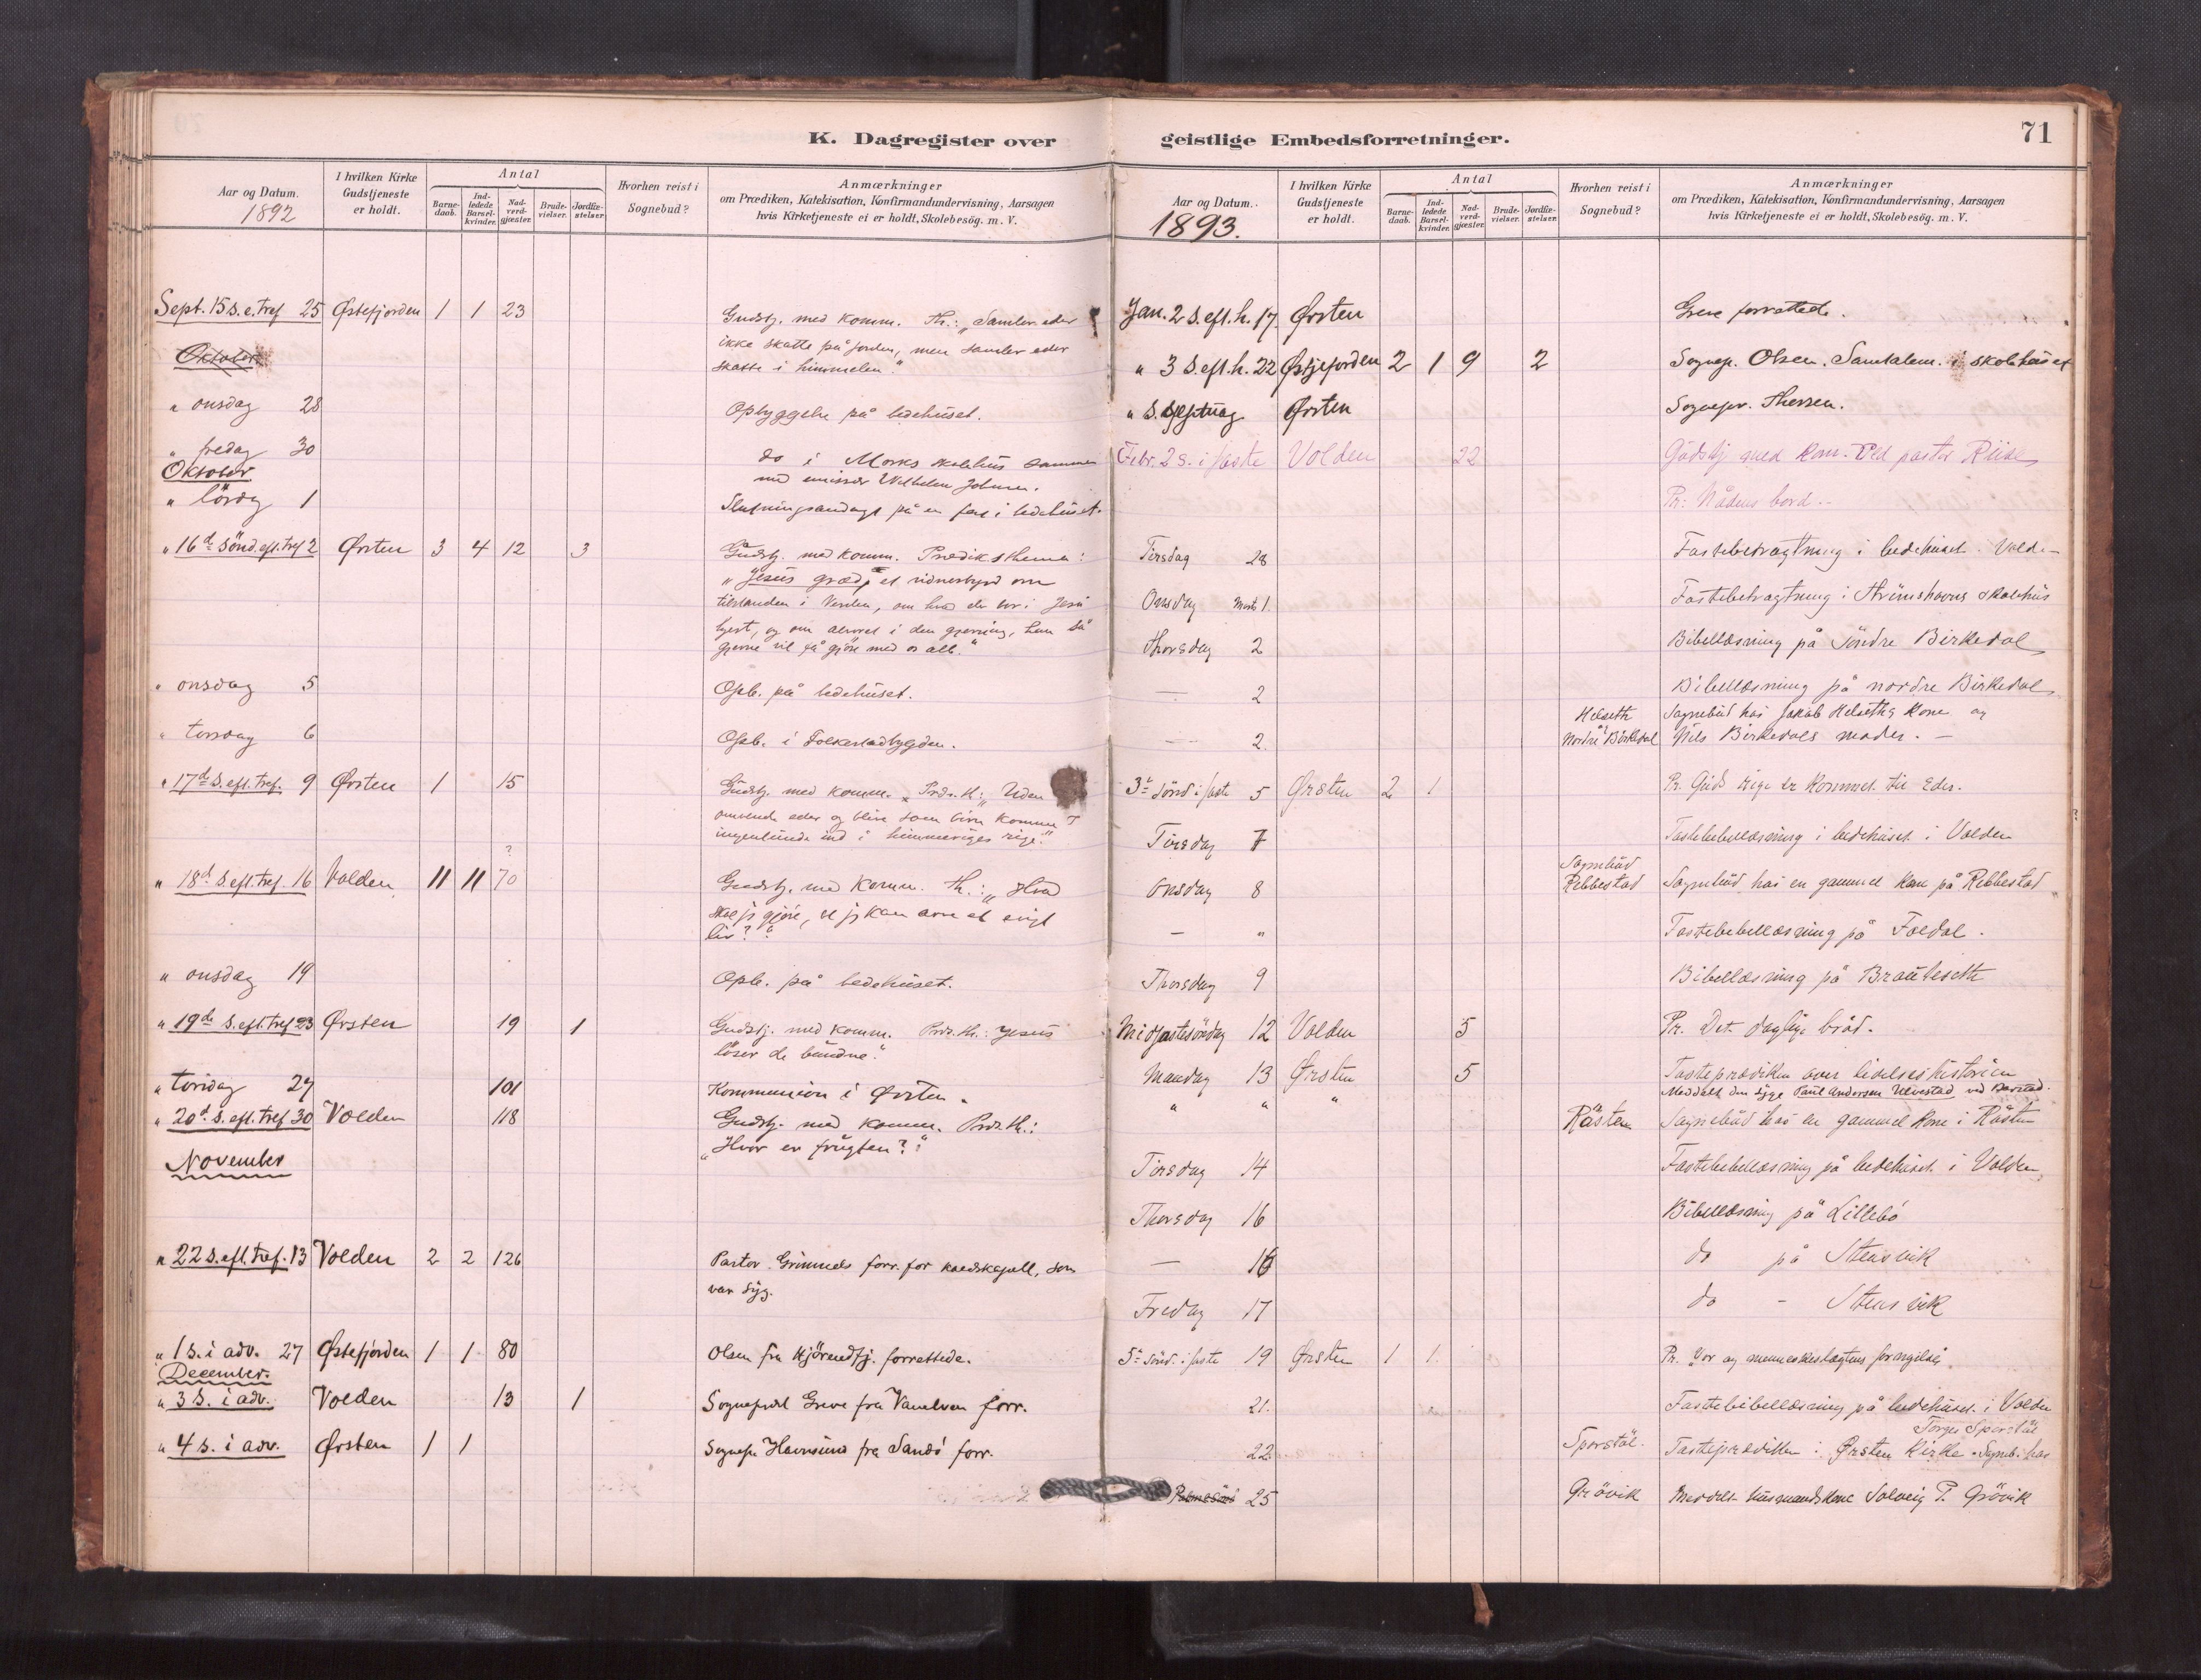 K. Dagregister over geistlige Embedsforretninger.
71
Aar og Datum.
1892
I hvilken Kirke
Gudstjeneste
er holdt.
Antal
Barne-
daab.
Ind-
ledede
Barsel-
kvinder.
Nad-
verd-
gjæster.
Brude-
vielser.
Jordfæ-
stelser.
Hvorhen reist i
Sognebud?
Anmærkninger
om Prædiken, Katekisation, Konfirmandundervisning, Aarsagen
hvis Kirketjeneste ei er holdt, Skolebesög. m. V.
Sept. 15 s. e. tref 25 Østefjorden 1 1 23 Gudstj. med komm. Th.: "Samler eder
ikke skatte på jorden, men samler eder
skatte i himmelen."
Oktober
" onsdag 28 Opbyggelse på bedehuset.
" fredag 30 do i Morks skolehus sammen
med emissær Vilhelm Johnsen.
Oktober
" lördag 1 Slutningsandagt på en fest i bedehuset.
" 16de sönd. eft. tref 2 Ørsten 3 4 12 3 Gudstj. med komm. Prædiksthema:
"Jesus græd, et vidnesbyrd om
tilstanden i Verden, om hvad der bor i Jesu
hjert, og om alvoret i den gjerning, han så
gjerne vil få gjöre med os alle."
" onsdag 5 Opb. på bedehuset.
" torsdag 6 Opb. i Folkestadbygden.
" 17de s. eft. tref. 9 Ørsten 1 15 Gudstj. med komm. Præd. th.: "Uden
omvende eder og blive som börn kommer I
ingenlunde ind i himmeriges rige."
?
" 18de s. eft. tref. 16 Volden 11 11 70 Gudstj. med komm. Th.: "Hvad
skal jeg gjöre, at jeg kan arve et evigt
liv?"
" onsdag 19 Opb. på bedehuset.
" 19de s. eft. tref 23 Ørsten 19 1 Gudstj. med komm. Præd. th.: Jesus
löser de bundne."
" torsdag 27 101 Kommunion i Ørsten.
" 20de s. eft. tref 30 Volden 118 Gudstj. med komm. Præd. th.:
"Hvor er frugten?"
November
" 22 s. eft. tref. 13 Volden 2 2 126 Pastor Grimnels forr. for koedskapell, som
var syg.
" 1 s. i adv. 27 Østefjorden 1 1 80 Olsen fra Hjörendfj. forrettede.
December.
" 3 s. i adv. Volden 13 1 Sognepræst Greve fra Vanelven forr.
" 4 s. i adv. Ørsten 1 1 Sognepr. Havnsund fra Sandö forr.
Aar og Datum.
1893.
I hvilken Kirke
Gudstjeneste
er holdt.
Antal
Barne-
daab.
Ind-
ledede
Barsel-
kvinder.
Nad-
verd-
gjæster.
Brude-
vielser.
Jordfæ-
stelser.
Hvorhen reist i
Sognebud?
Anmærkninger
om Prædiken, Katekisation, Konfirmandundervisning, Aarsagen
hvis Kirketjeneste ei er holdt, Skolebesög. m. V.
Jan. 2 s. eft. h. 17 Ørsten Greve forrettede.
" 3 s. eft. h. 22 Østjefjorden 2 1 9 2 Sognepr. Olsen. Samtalem. i skolehuset
" s. septuag Ørsten Sognepr. Thesen.
Febr. 2 s. i faste Volden 22 Gudstj med kom. Ved pastor Riise
Pr: Nådens bord.
Tirsdag 28 Fastebetragtning i bedehuset i Volden
Onsdag Marts 1. Fastebetragtning i Strömshavns skolehus
Thorsdag 2 Bibellæsning på Söndre Birkedal
— 2 Bibellæsning på nordre Birkedal
— 2 Helseth
Nordre Birkedal Sognebud hos Jakob Helseths kone og
Nils Birkedals moder. —
3die Sönd i faste 5 Ørsten 2 1 Pr. Guds rige er kommet til Eder.
Tirsdag 7 Fastebibellæsning i bedehuset i Volden
Onsdag 8 Sognebud
Rebbestad Sognebud hos en gammel kone på Rebbestad
— " Fastebibellæsning på Foldal.
Thorsdag 9 Bibellæsning på Brauteseth
Midfastesöndag 12 Volden 5 Pr. Det daglige bröd.
Mandag 13 Ørsten 5 Fasteprædiken over lidelseshistorien
Meddelt den syge Paul Andersen Ulvestad ved Barstad.
" " " Råsten Sognebud hos en gammel kone i Råsten
Tirsdag 14 Fastebibellæsning på bedehuset i Volden
Thorsdag 16 Bibellæsning på Lillebö
— 16 do på Stensvik
Fredag 17 do - Stensvik
5te Sönd. i faste 19 Ørsten 1 1 Pr. Vor og menneskeslægtens
21. Fastebibellæsning på bedehuset i Volden
22. Sporstöl. Fasteprædiken i Ørsten Kirke. Sogneb. hos
Torges Sporstöl
Palmesönd 25 Grövik Meddelt husmandskone Solveig P. Grövik